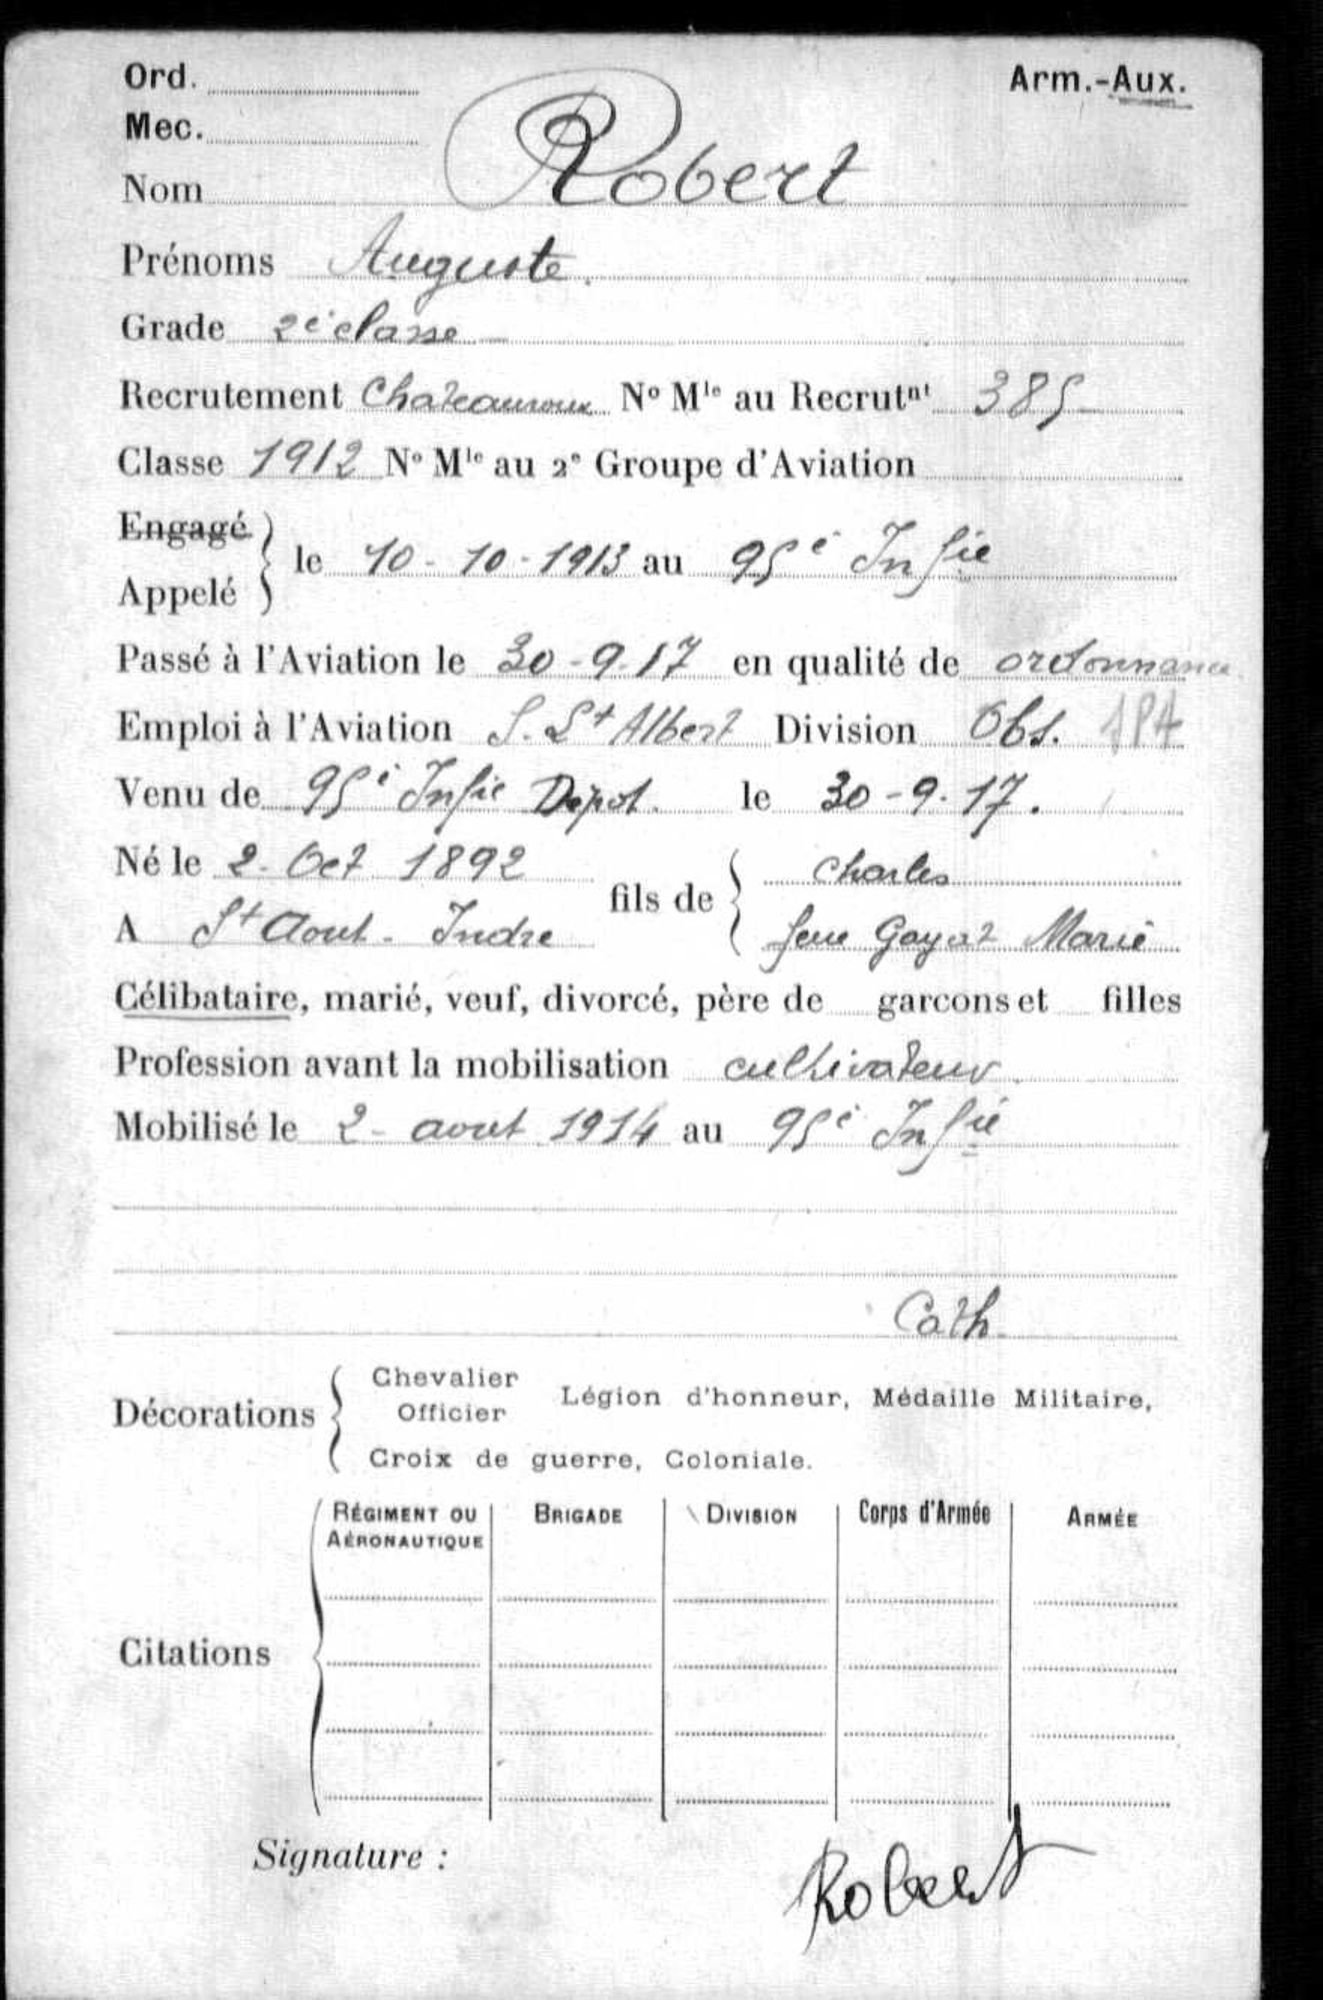 Ord.
Arm.-Aux.
Mec.
Nom Robert
Prénoms Auguste.
Grade 2e classe
Recrutement Chateauroux No Mle au Recrutnt 385
Classe 1912 No Mle au 2e Groupe d'Aviation
Engagé
le 10-10-1913 au 95e Infie
Appelé
Passé à l'Aviation le 30-9-17 en qualité de ordonnance
Emploi à l'Aviation S. Lt Albert Division Obs.
Venu de 95e Infie Dépot. le 30-9-17.
Né le 2-Oct 1892 fils de Charles
A St Aout-Indre Marie
Célibataire, marié, veuf, divorcé, père de garcons et filles
Profession avant la mobilisation cultivateur.
Mobilisé le 2-aout 1914 au 95e Infie
Cath.
Décorations Chevalier Officier Légion d'honneur, Médaille Militaire,
Croix de guerre, Coloniale.
Citations
RÉGIMENT OU AÉRONAUTIQUE BRIGADE DIVISION Corps d'Armée ARMÉE
Signature :
Robert